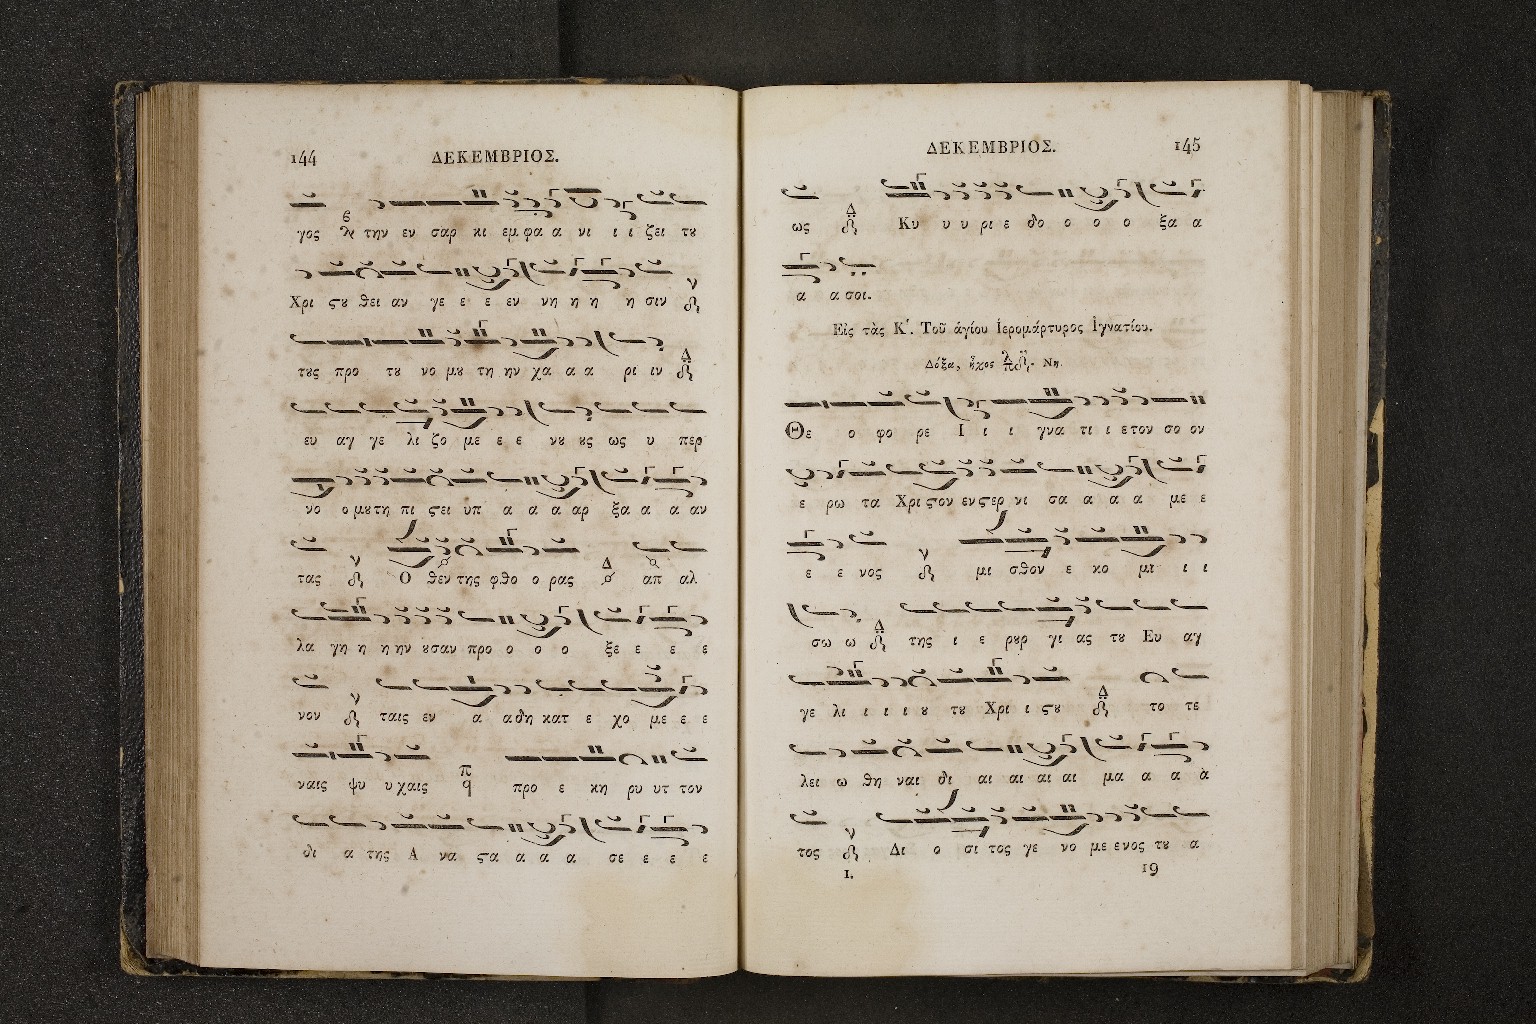 144 ΔΕΚΕΜΒΡΙΟΣ.
γος την εν σαρ κι εμ φα α νι ι ι ζει τȣ
Χρι ϛȣ θει αν γε ε ε εν νη η η η σιν
τȣς προ τȣ νο μȣ τη ην χα α α ρι ιν
ευ αγ γε λι ζο με ε ε νȣ ȣς ως υ περ
νο ο μȣ τη πι ϛει ὑπ α α α αρ ξα α α αν
τας Ο θεν της φθο ο ρας απ αλ
λα γη η η ην ȣσαν προ ο ο ο ξε ε ε ε
νον ταις εν α α δη κατ ε χο με ε ε
ναις ψυ υ χαις προ ε κη ρυ υτ τον
δι α της Α να ϛα α α α σε ε ε ε
ΔΕΚΕΜΒΡΙΟΣ. 145
ως Κυ υ υ ρι ε δο ο ο ο ξα α
α α σοι.
Εἰς τὰς Κ΄. Τοῦ ἁγίου Ἱερομάρτυρος Ἰγνατίου.
Δόξα, ἦχος Νη.
Θε ο φο ρε Ι ι ι γνα τι ι ε τον σο ον
ε ρω τα Χρι ϛον εν ϛερ νι σα α α α με ε
ε ε νος μι σθον ε κο μι ι ι
σω ω της ι ε ρȣρ γι ας τȣ Ευ αγ
γε λι ι ι ι ȣ τȣ Χρι ι ϛȣ το τε
λει ω θη ναι δι αι αι αι αι μα α α ὰ
τος Δι ο σι τος γε νο με ενος τȣ α
I. 19